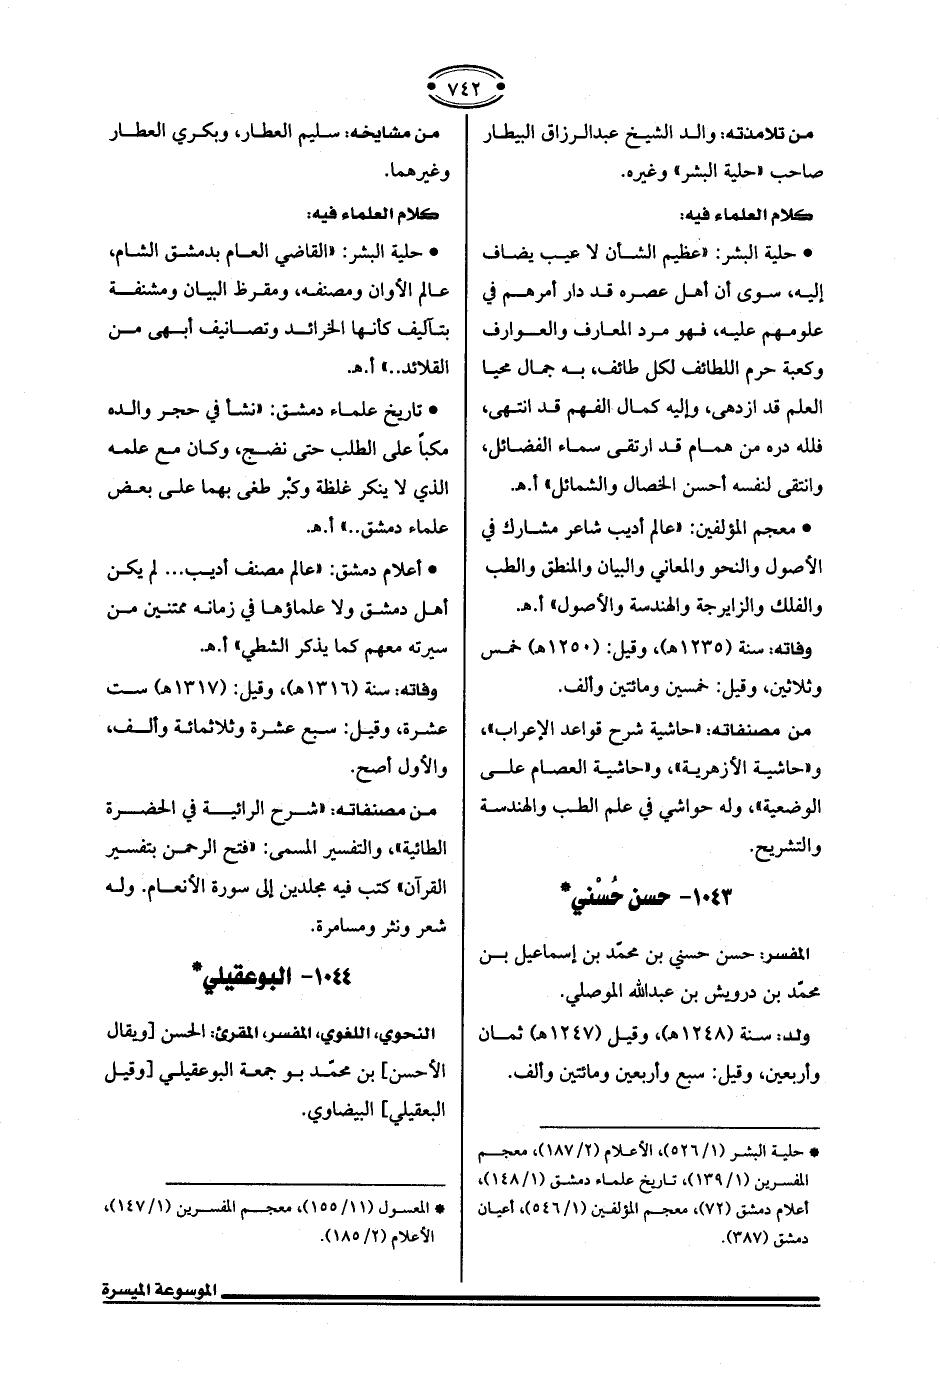 ٧٤٢
من تلامذته: والد الشيخ عبدالرزاق البيطار
صاحب «حلية البشر» وغيره.
كلام العلماء فيه:
• حلية البشر: «عظيم الشأن لا عيب يضاف
إليه، سوى أن أهل عصره قد دار أمرهم في
علومهم عليه، فهو مرد المعارف والعوارف
وكعبة حرم اللطائف لكل طائف، به جمال محيا
العلم قد ازدهى، وإليه كمال الفهم قد انتهى،
فلله دره من همام قد ارتقى سماء الفضائل،
وانتقى لنفسه أحسن الخصال والشمائل» أ.هـ.
• معجم المؤلفين: «عالم أديب شاعر مشارك في
الأصول والنحو والمعاني والبيان والمنطق والطب
والفلك والزايرجة والهندسة والأصول» أ.هـ.
وفاته: سنة (١٢٣٥هـ)، وقيل: (١٢٥٠هـ) خمس
وثلاثين، وقيل: خمسين ومائتين وألف.
من مصنفاته: «حاشية شرح قواعد الإعراب»،
و«حاشية الأزهرية»، و«حاشية العصام على
الوضعية»، وله حواشي في علم الطب والهندسة
والتشريح.
١٠٤٣- حسن حُسْني*
المفسر: حسن حسني بن محمّد بن إسماعيل بن
محمّد بن درويش بن عبدالله الموصلي.
ولد: سنة (١٢٤٨هـ)، وقيل (١٢٤٧هـ) ثمان
وأربعين، وقيل: سبع وأربعين ومائتين وألف.
* حلية البشر (١/٥٢٦)، الأعلام (٢/١٨٧)، معجم
المفسرين (١/١٣٩)، تاريخ علماء دمشق (١/١٤٨)،
أعلام دمشق (٧٢)، معجم المؤلفين (١/٥٤٦)، أعيان
دمشق (٣٨٧).
من مشايخه: سليم العطار، وبكري العطار
وغيرهما.
كلام العلماء فيه:
• حلية البشر: «القاضي العام بدمشق الشام،
عالم الأوان ومصنفه، ومقرظ البيان ومشنفة
بتآليف كأنها الخرائد وتصانيف أبهى من
القلائد..» أ.هـ.
• تاريخ علماء دمشق: «نشأ في حجر والده
مكباً على الطلب حتى نضج، وكان مع علمه
الذي لا ينكر غلظة وكبْر طغى بهما على بعض
علماء دمشق..» أ.هـ.
• أعلام دمشق: «عالم مصنف أديب... لم يكن
أهل دمشق ولا علماؤها في زمانه ممتنين من
سيرته معهم كما يذكر الشطي» أ.هـ.
وفاته: سنة (١٣١٦هـ)، وقيل: (١٣١٧هـ) ست
عشرة، وقيل: سبع عشرة وثلاثمائة وألف،
والأول أصح.
من مصنفاته: «شرح الرائية في الحضرة
الطائية»، والتفسير المسمى: «فتح الرحمن بتفسير
القرآن» كتب فيه مجلدين إلى سورة الأنعام. وله
شعر ونثر ومسامرة.
١٠٤٤- البوعقيلي*
النحوي، اللغوي، المفسر، المقرئ: الحسن [ويقال
الأحسن] بن محمّد بو جمعة البوعقيلي [وقيل
البعقيلي] البيضاوي.
* المعسول (١١/١٥٥)، معجم المفسرين (١/١٤٧)،
الأعلام (٢/١٨٥).
الموسوعة الميسرة